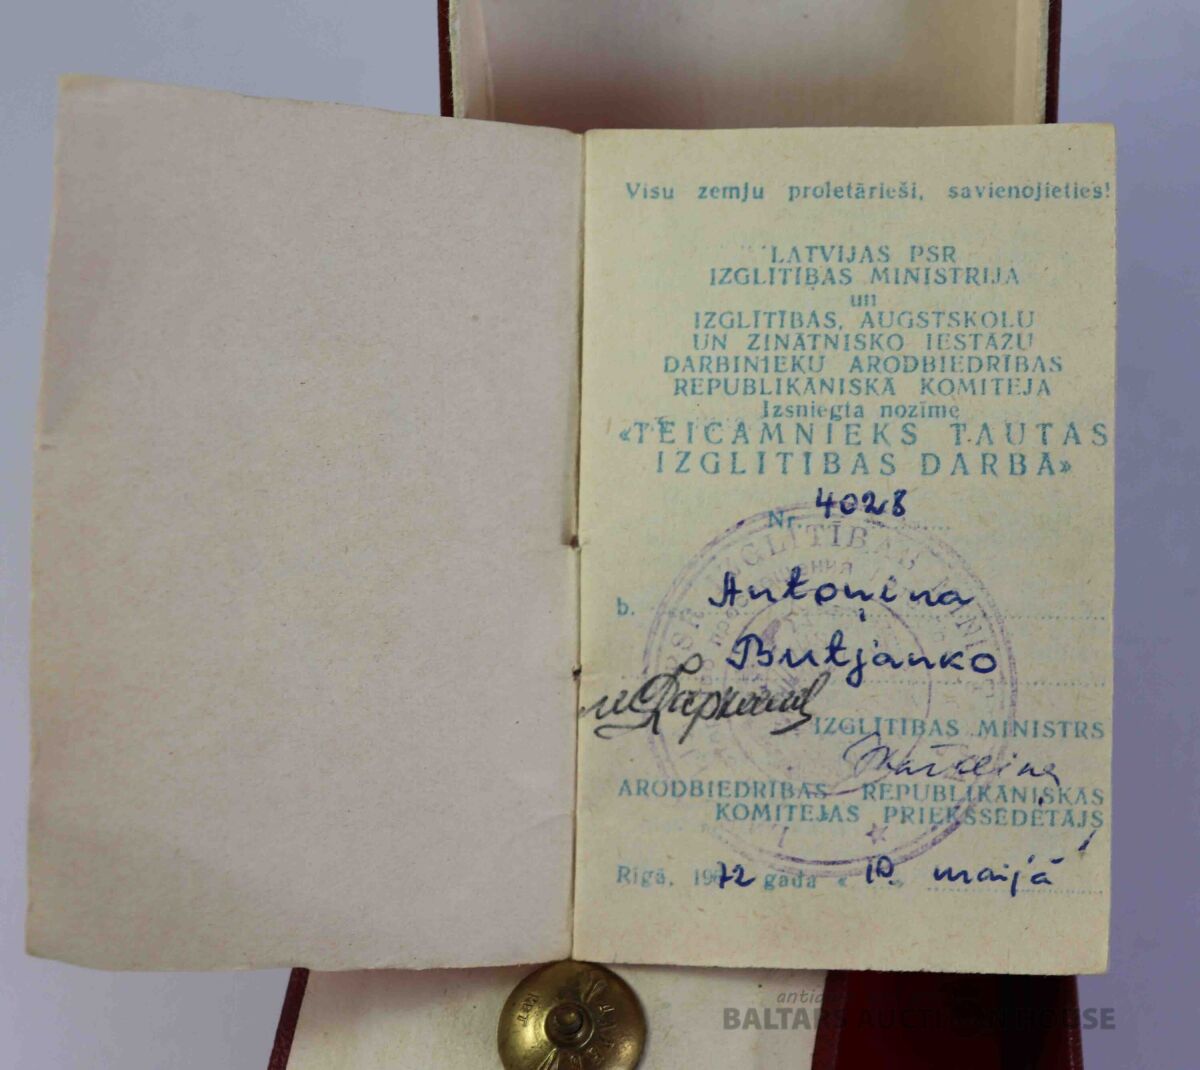 Visu zemju proletārieši, savienojieties!
LATVIJAS PSR
IZGLĪTĪBAS MINISTRIJA
un
IZGLĪTĪBAS, AUGSTSKOLU
UN ZINĀTNISKO IESTĀŽU
DARBINIEKU ARODBIEDRĪBAS
REPUBLIKĀNISKĀ KOMITEJA
Izsniegta nozīme
«TEICAMNIEKS TAUTAS
IZGLĪTĪBAS DARBĀ»
Nr. 4028
b. Antoņina
Butjanko
IZGLĪTĪBAS MINISTRS
ARODBIEDRĪBAS REPUBLIKĀNISKĀS
KOMITEJAS PRIEKŠSĒDĒTĀJS
Rīgā, 1972 gada «10» maijā
BALTARS AUCTION HOUSE